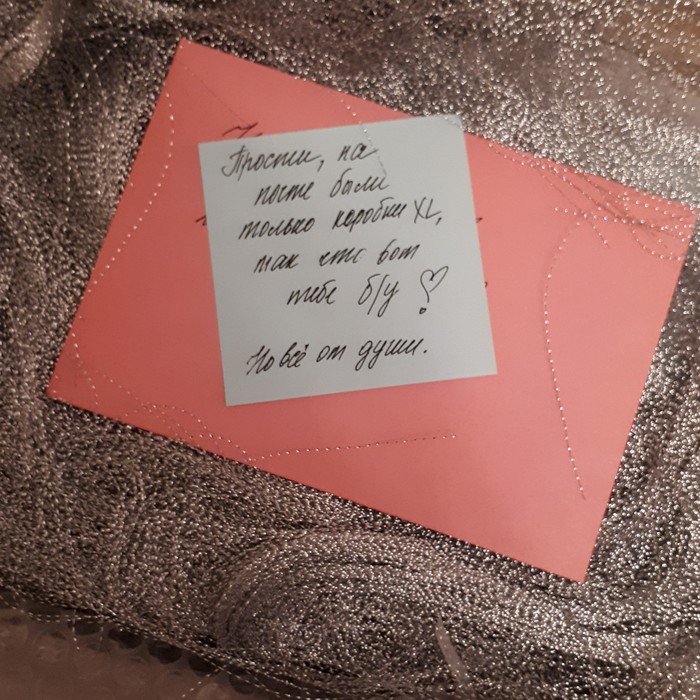 Прости, на
почте были
только коробки XL,
так что вот
тебе б/у
Но всё от души.